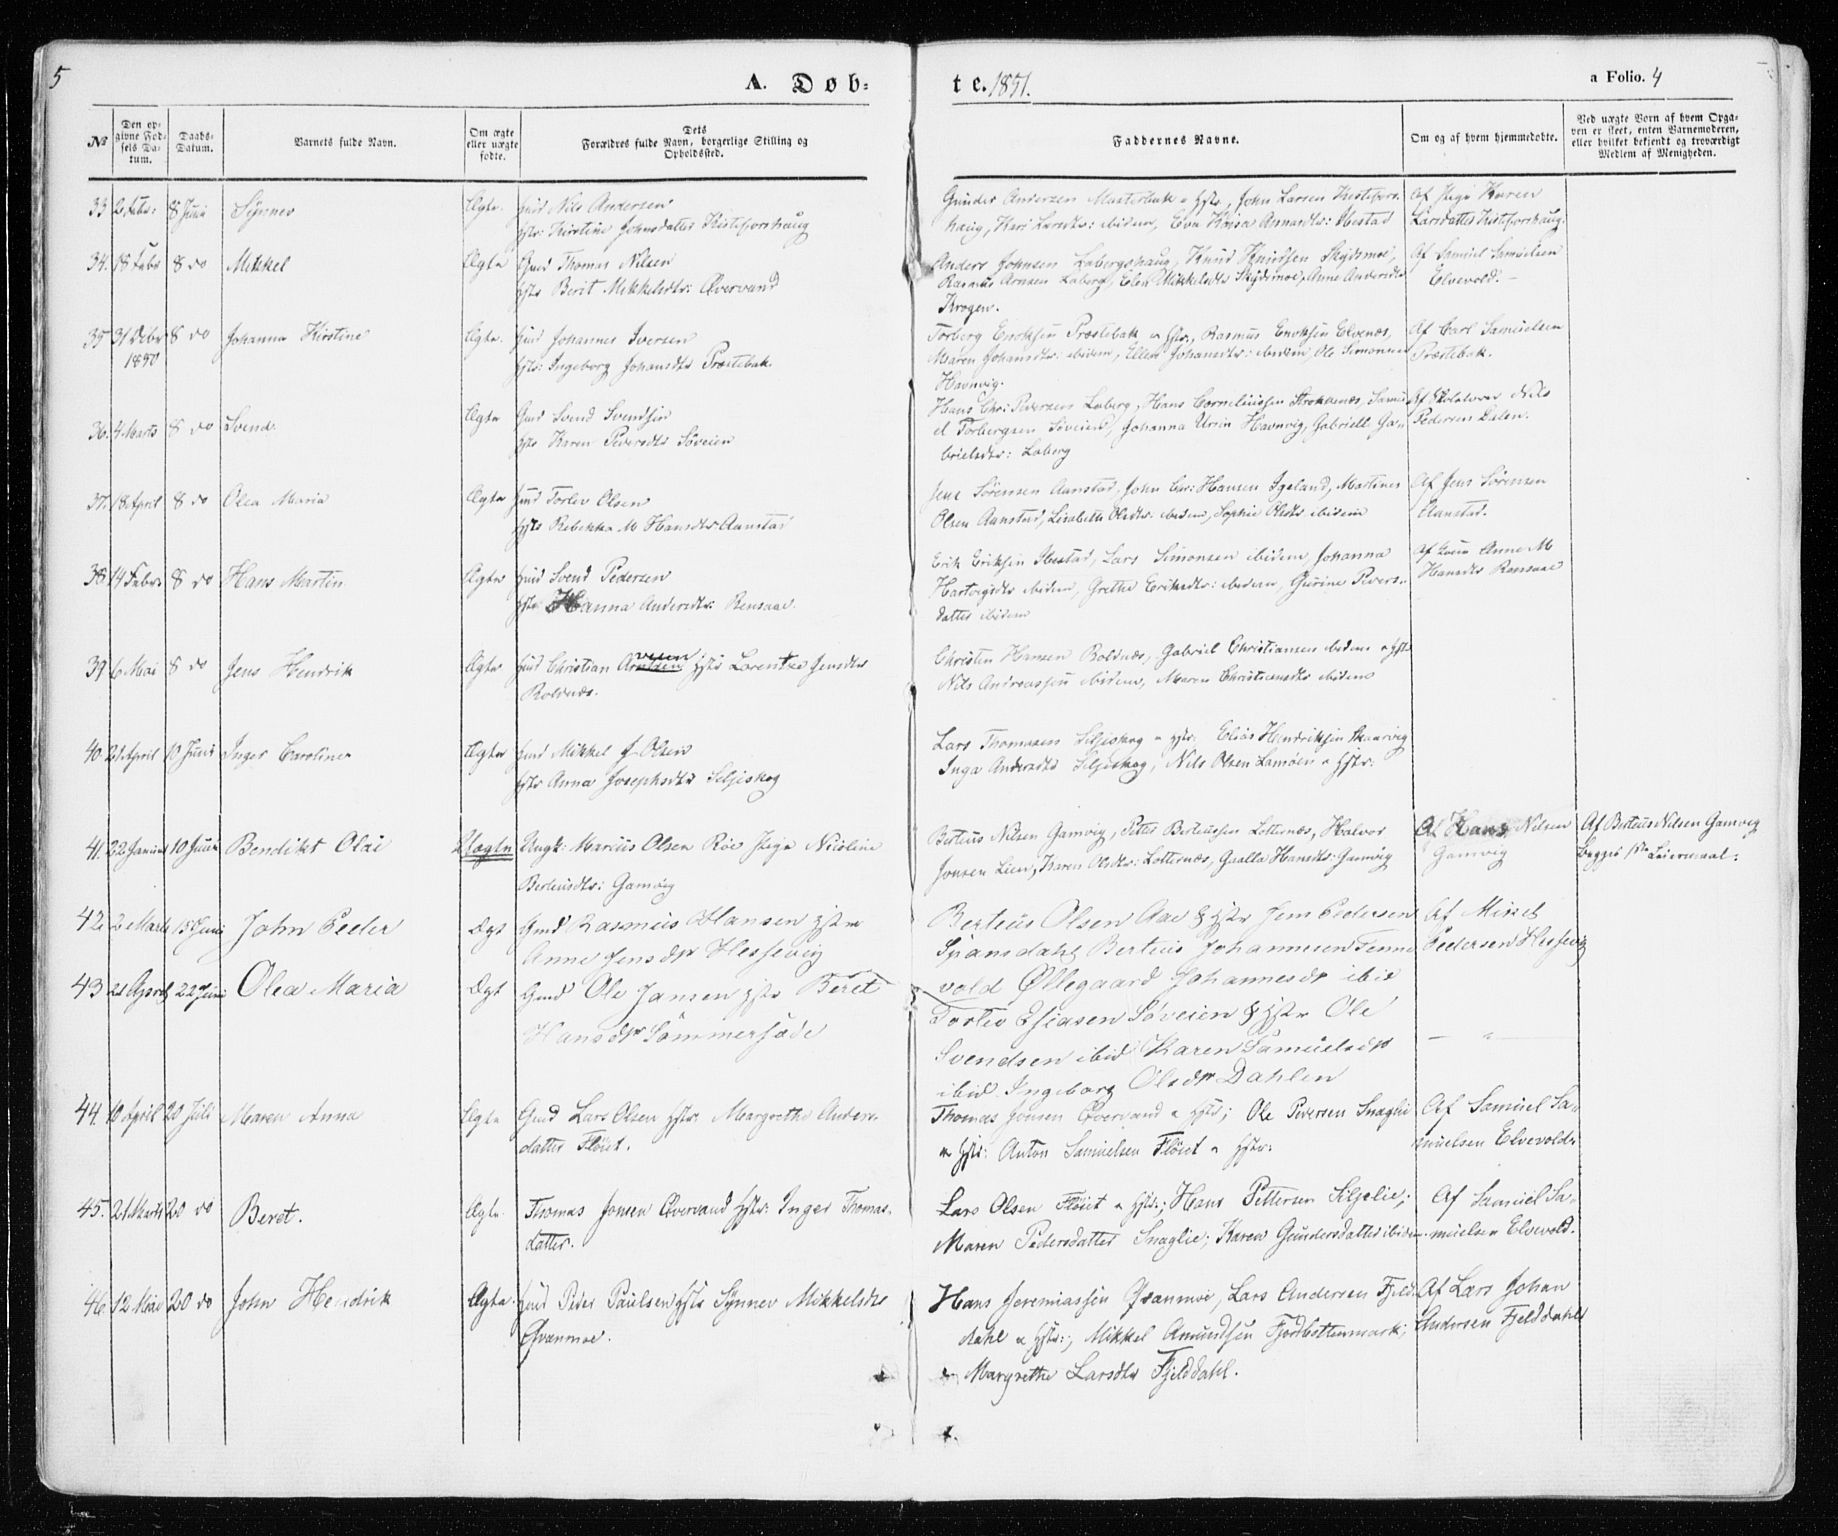 5
A. Døb-
te. 1851.
a Folio. 4
No
Den opgivne Fødsels Datum.
Daabs-Datum.
Barnets fulde Navn.
Om ægte eller uægte fødte.
Dets Forældres fulde Navn, borgerlige Stilling og Opholdssted.
Faddernes Navne.
Om og af hvem hjemmedøbte.
Ved uægte Børn af hvem Opgaven er skeet, enten Barnemoderen, eller hvilket bekjendt og troværdigt Medlem af Menigheden.
33. 2 Febr: 8 Juni Synnev Ægte. Gmd Nils Andersen
Hstr: Kirstine Johnsdatter Kistefoshaug
Gunder Andersen Masterbak & Hstr, John Larsen Kistefos-
haug, Kari Larsdtr: ibidem, Eva Krisa Arnardtr: Ibestad
Af Pige Karen
Larsdatter Kistefoshaug:
34. 18 Febr 8 do Mikkel Ægte Gmd Thomas Nilsen
Hstr Berit Mikkelsdtr: Øvervand
Anders Johnsen Labergshaug, Knud Knudsen Skydsmoe,
Rasmus Arnsen Laberg, Elen Mikkelsdtr Skydsmoe, Anne Andersdtr
Krogen.
Af Samuel Samuelsen
Elvevold. –
35 31 Decbr 1850 8 do Johanna Kirstine Ægte. Gmd Johannes Iversen
Hstr: Ingeborg Johansdtr Præstebak.
Torberg Enoksen Præstebak & Hstr, Rasmus Enoksen Elvenæs,
Maren Johansdtr: ibidem, Ellen Johansdtr: ibidem, Ole Simonsen
Havnvig.
Af Carl Samuelsen
Præstebak.
36. 4 Marts 8 do Svend. Ægte Gmd Svend Svendsen
Hstr Karen Pedersdtr Søveien
Hans Chr: Pedersen Laberg, Hans Corneliussen Strokkenæs, Samu-
el Torbergsen Søveien, Johanna Ursin Havnvig, Gabrielle Ga-
brielsdtr: Laberg
Af Skolelærer Nils
Pedersen Dalen.
37. 18 April 8 do Olea Maria Ægte Gmd Torlev Olsen
Hstr Rebekka M Hansdtr Aanstad
Jens Sørensen Aanstad, John Chr: Hansen Igeland, Martines
Olsen Aanstad, Lisabeth Olsdtr: ibidem, Sophie Olsdtr ibidem
Af Jens Sørensen
Aanstad.
38. 14 Febr: 8 do Hans Martin Ægte Gmd Svend Pedersen
Hstr Hanna Andersdtr: Rensaae.
Erik Eriksen Ibestad, Lars Simonsen ibidem, Johanna
Hartvigsdtr ibidem, Grethe Eriksdtr: ibidem, Gurine Peders-
datter ibidem
Af Anne M
Hansdtr Rensaae
39. 6 Mai 8 do Jens Hendrik Ægte Gmd Christian Arntzen Hstr Lorentze Jensdtr
Roldnæs.
Christen Hansen Roldnæs, Gabriel Christiansen ibidem & Hstr
Nils Andreassen ibidem, Maren Christiansdtr ibidem
40. 21 April 10 Juni Inger Caroline Ægte Gmd Mikkel J. Olsen
Hstr Anna Josephsdtr Seljeskog
Lars Thomasen Seljeskog & Hstr; Elias Hendriksen Skaarvig
Inga Andersdtr Seljeskog, Nils Olsen Lamøen & Hstr:
41. 22 Januar 10 Juni Bendikt Olai Uægte Ungk: Marius Olsen Røe Pige Nicoline
Berteusdtr: Gamvig
Berteus Nilsen Gamvig, Petter Berteussen Lotternæs, Halvor
Jonsen Lien, Karen Olsdtr: Lotternæs, Gjalla Hansdtr: Gamvig
Af Hans Nilsen
Gamvig
Af Berteus Nilsen Gamvig
begges 1ste Leiermaal:
42. 2 Marts 15 Juni John Peder Ægt Gmd Rasmus Hansen Hstr
Anne Jensdr Hessevig
Berteus Olsen Aae & Hstr Jens Pedersen
Spansdahl Berteus Johannesen Tenne
vold Øllegaard Johannesdr ibid
Af Missel
Pedersen Hessevig
43 21 April 22 Juni Olea Maria Ægt Gmd Ole Jansen Hstr Beret
Hansdr Sommersæde
Torlev Esiasen Søveien & Hstr Ole
Svendsen ibid Karen Samuelsdr
ibid Ingeborg Olsdr Dahlen
— " —
44. 10 April 20 Juli Maren Anna Ægte Gmd Lars Olsen Hstr: Margrethe Anders-
datter Fløiet.
Thomas Jonsen Øvervand & Hstr; Ole Pedersen Snaglie
& Hstr: Anton Samuelsen Fløiet & Hstr:
Af Samuel Sa-
muelsen Elvevold.
45. 21 Marts 20 do Beret. Ægte. Thomas Jonsen Øvervand Hstr: Inger Thomas-
datter.
Lars Olsen Fløiet & Hstr:; Hans Pettersen Seljelie;
Maren Pedersdatter Snaglie; Karen Gundersdatter ibidem.
Af Samuel Sa-
muelsen Elvevold.
46. 12 Mai 20 do John Hendrik Ægte. Gmd Peder Paulsen Hstr Synnev Mikkelsdtr
Qvanmoe.
Hans Jeremiassen Qvanmoe, Lars Andersen Fjeld-
dahl & Hstr:; Mikkel Amundsen Fjordbottenmark;
& Margrethe Larsdtr Fjelddahl.
Af Lars Johan
Andersen Fjelddahl